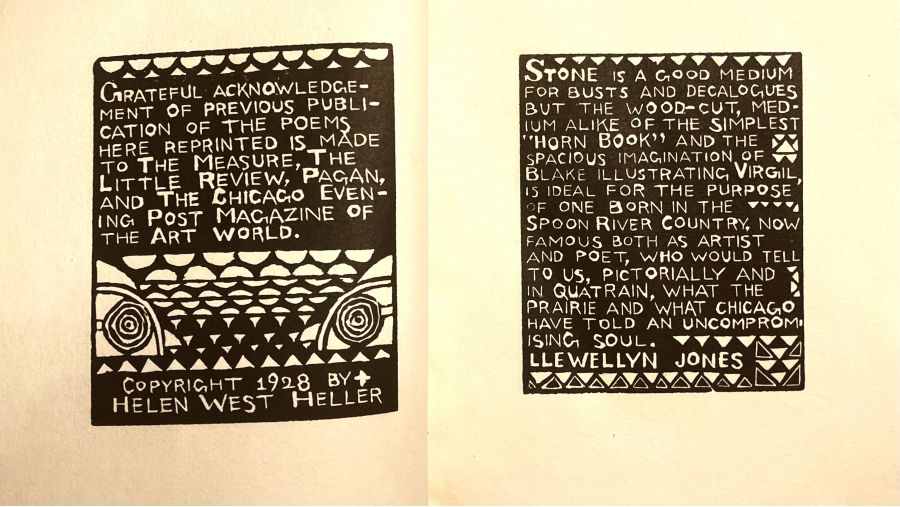 GRATEFUL ACKNOWLEDGE-
MENT OF PREVIOUS PUBLI-
CATION OF THE POEMS
HERE REPRINTED IS MADE
TO THE MEASURE, THE
LITTLE REVIEW, PAGAN,
AND THE CHICAGO EVEN-
ING POST MAGAZINE OF
THE ART WORLD.
COPYRIGHT 1928 BY
HELEN WEST HELLER
STONE IS A GOOD MEDIUM
FOR BUSTS AND DECALOGUES
BUT THE WOOD-CUT, MED-
IUM ALIKE OF THE SIMPLEST
"HORN BOOK" AND THE
SPACIOUS IMAGINATION OF
BLAKE ILLUSTRATING VIRGIL,
IS IDEAL FOR THE PURPOSE
OF ONE BORN IN THE
SPOON RIVER COUNTRY, NOW
FAMOUS BOTH AS ARTIST
AND POET, WHO WOULD TELL
TO US, PICTORIALLY AND
IN QUATRAIN, WHAT THE
PRAIRIE AND WHAT CHICAGO
HAVE TOLD AN UNCOMPROM-
ISING SOUL.
LLEWELLYN JONES